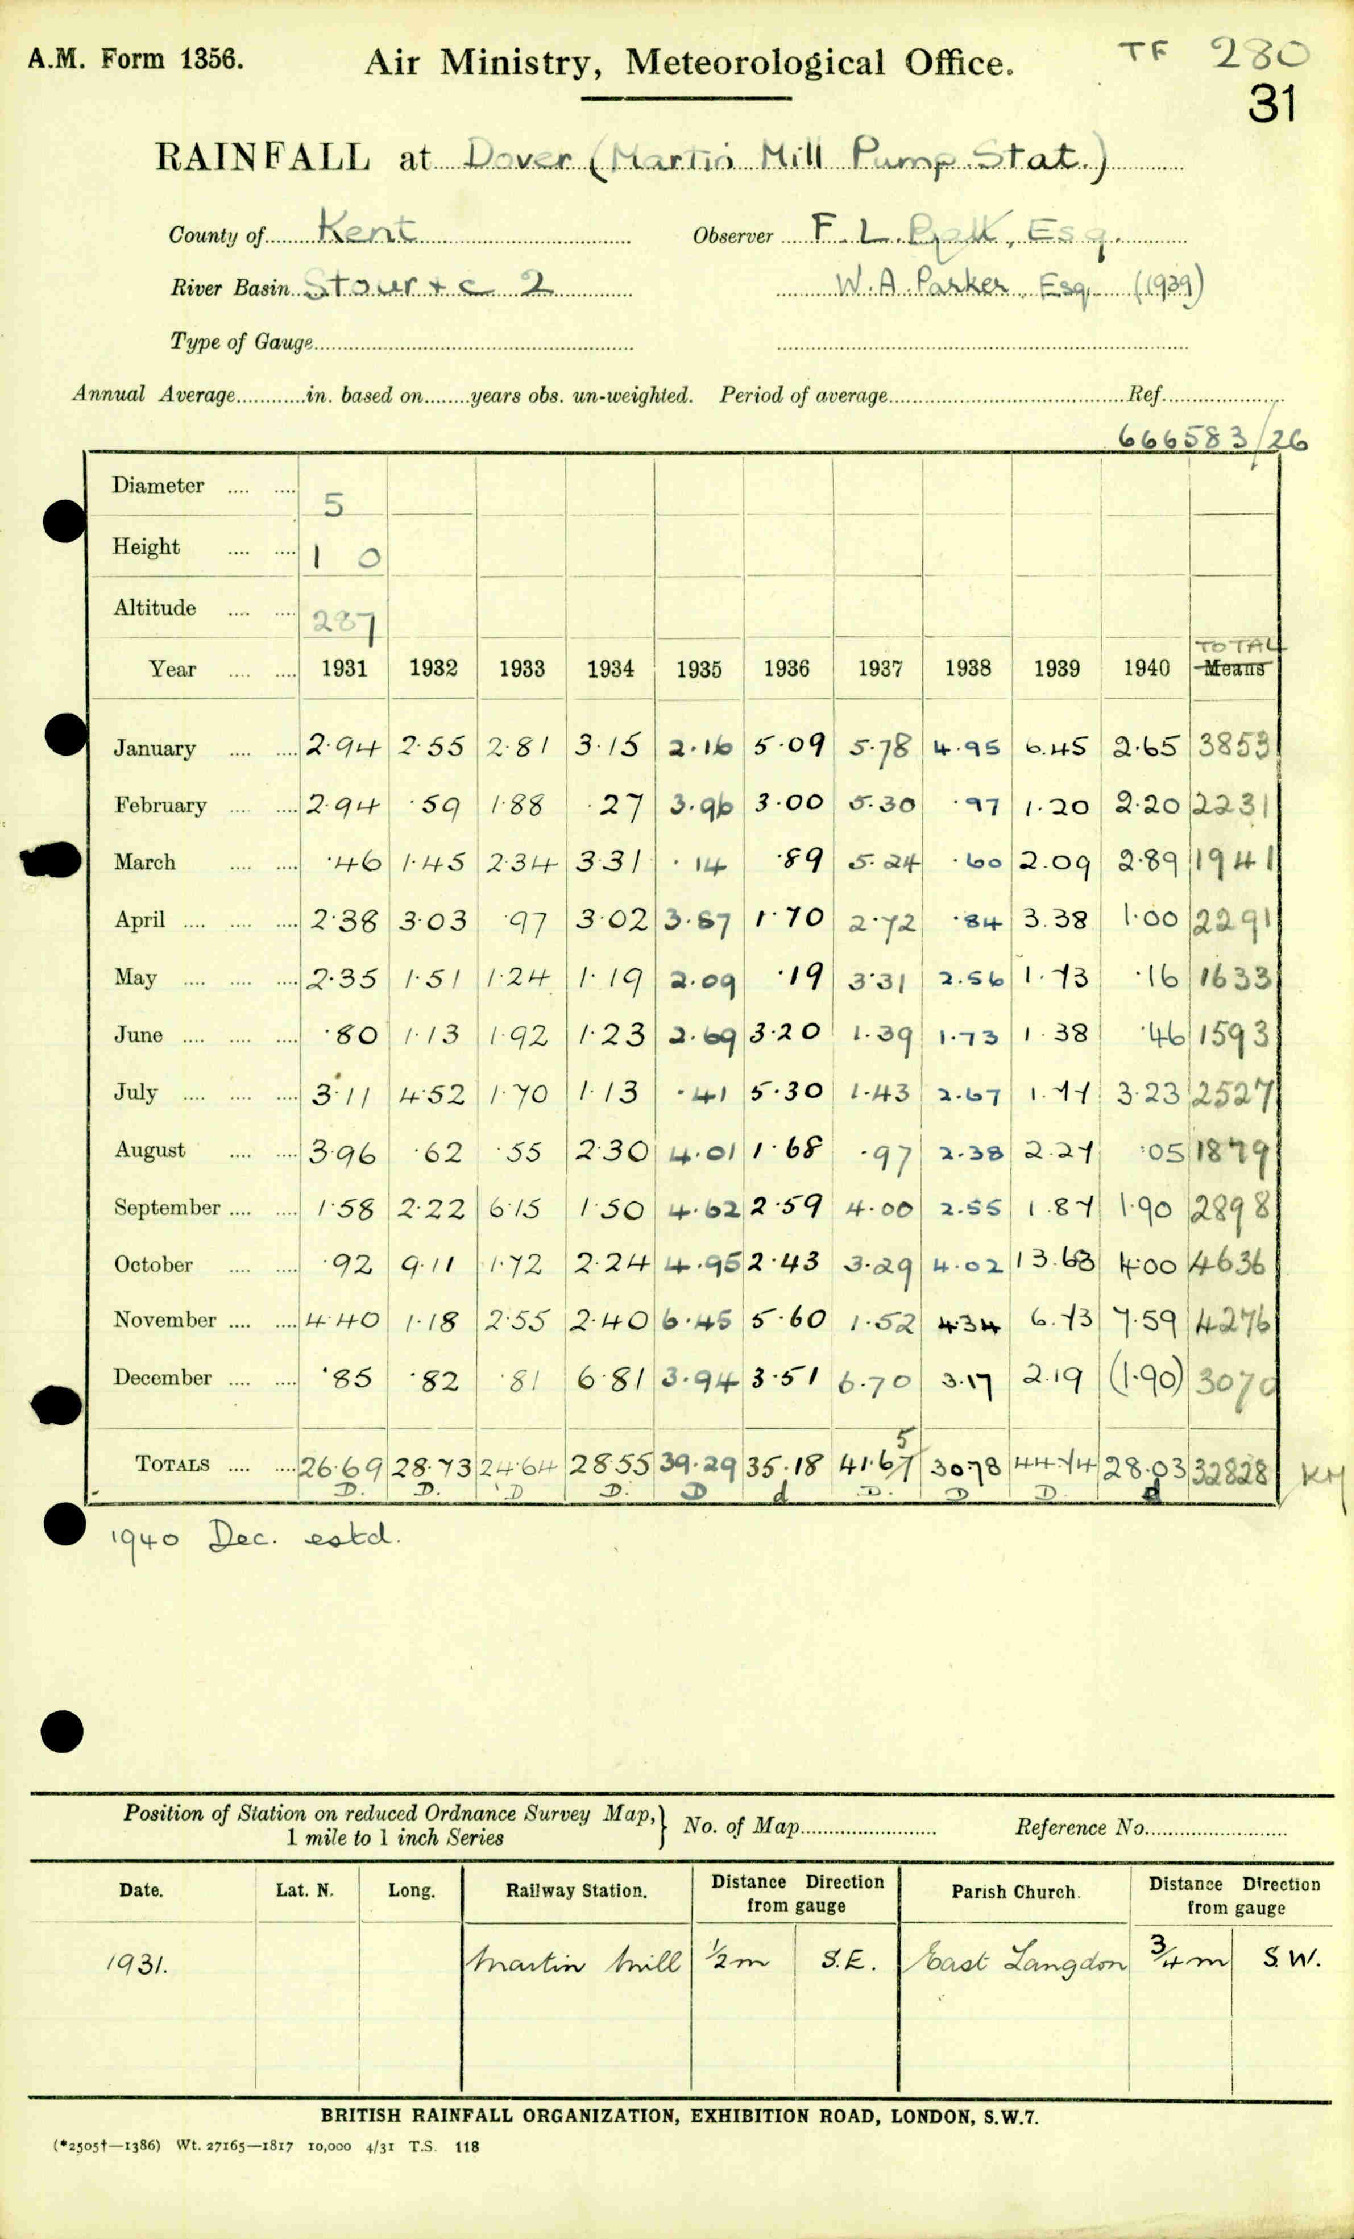 A.M. Form 1356.
Air Ministry, Meteorological Office.
TF 280
31
RAINFALL at Dover (Martin Mill Pump Stat.)
County of Kent Observer F. L. Esq.
River Basin Stour & c 2 W. A. Parker, Esq. (1939)
Type of Gauge
Annual Average in. based on years obs. un-weighted. Period of average Ref.
666583/26
Diameter 5
Height 1 0
Altitude 287
TOTAL
Year 1931 1932 1933 1934 1935 1936 1937 1938 1939 1940 Means
January 2.94 2.55 2.81 3.15 2.16 5.09 5.78 4.95 6.45 2.65 3853
February 2.94 .59 1.88 .27 3.96 3.00 5.30 .97 1.20 2.20 2231
March .46 1.45 2.34 3.31 .14 .89 5.24 .60 2.09 2.89 1941
April 2.38 3.03 .97 3.02 3.87 1.70 2.72 .84 3.38 1.00 2291
May 2.35 1.51 1.24 1.19 2.09 .19 3.31 2.56 1.73 .16 1633
June .80 1.13 1.92 1.23 2.69 3.20 1.39 1.73 1.38 .46 1593
July 3.11 4.52 1.70 1.13 .41 5.30 1.43 2.67 1.77 3.23 2527
August 3.96 .62 .55 2.30 4.01 1.68 .97 2.38 2.27 .05 1879
September 1.58 2.22 6.15 1.50 4.62 2.59 4.00 2.55 1.87 1.90 2898
October .92 9.11 1.72 2.24 4.95 2.43 3.29 4.02 13.68 4.00 4636
November 4.40 1.18 2.55 2.40 6.45 5.60 1.52 4.34 6.73 7.59 4276
December .85 .82 .81 6.81 3.94 3.51 6.70 3.17 2.19 (1.90) 3070
5
TOTALS 26.69 28.73 24.64 28.55 39.29 35.18 41.67 30.78 44.74 28.03 32828 KM
D. D. D D. D d D. D D. d
1940 Dec. estd.
Position of Station on reduced Ordnance Survey Map, No. of Map Reference No.
1 mile to 1 inch Series
Date. Lat. N. Long. Railway Station. Distance Direction from gauge Parish Church. Distance Direction from gauge
1931. Martin Mill ½ m S.E. East Langdon ¾ m S.W.
BRITISH RAINFALL ORGANIZATION, EXHIBITION ROAD, LONDON, S.W.7.
(*2505†—1386) Wt. 27165—1817 10,000 4/31 T.S. 118